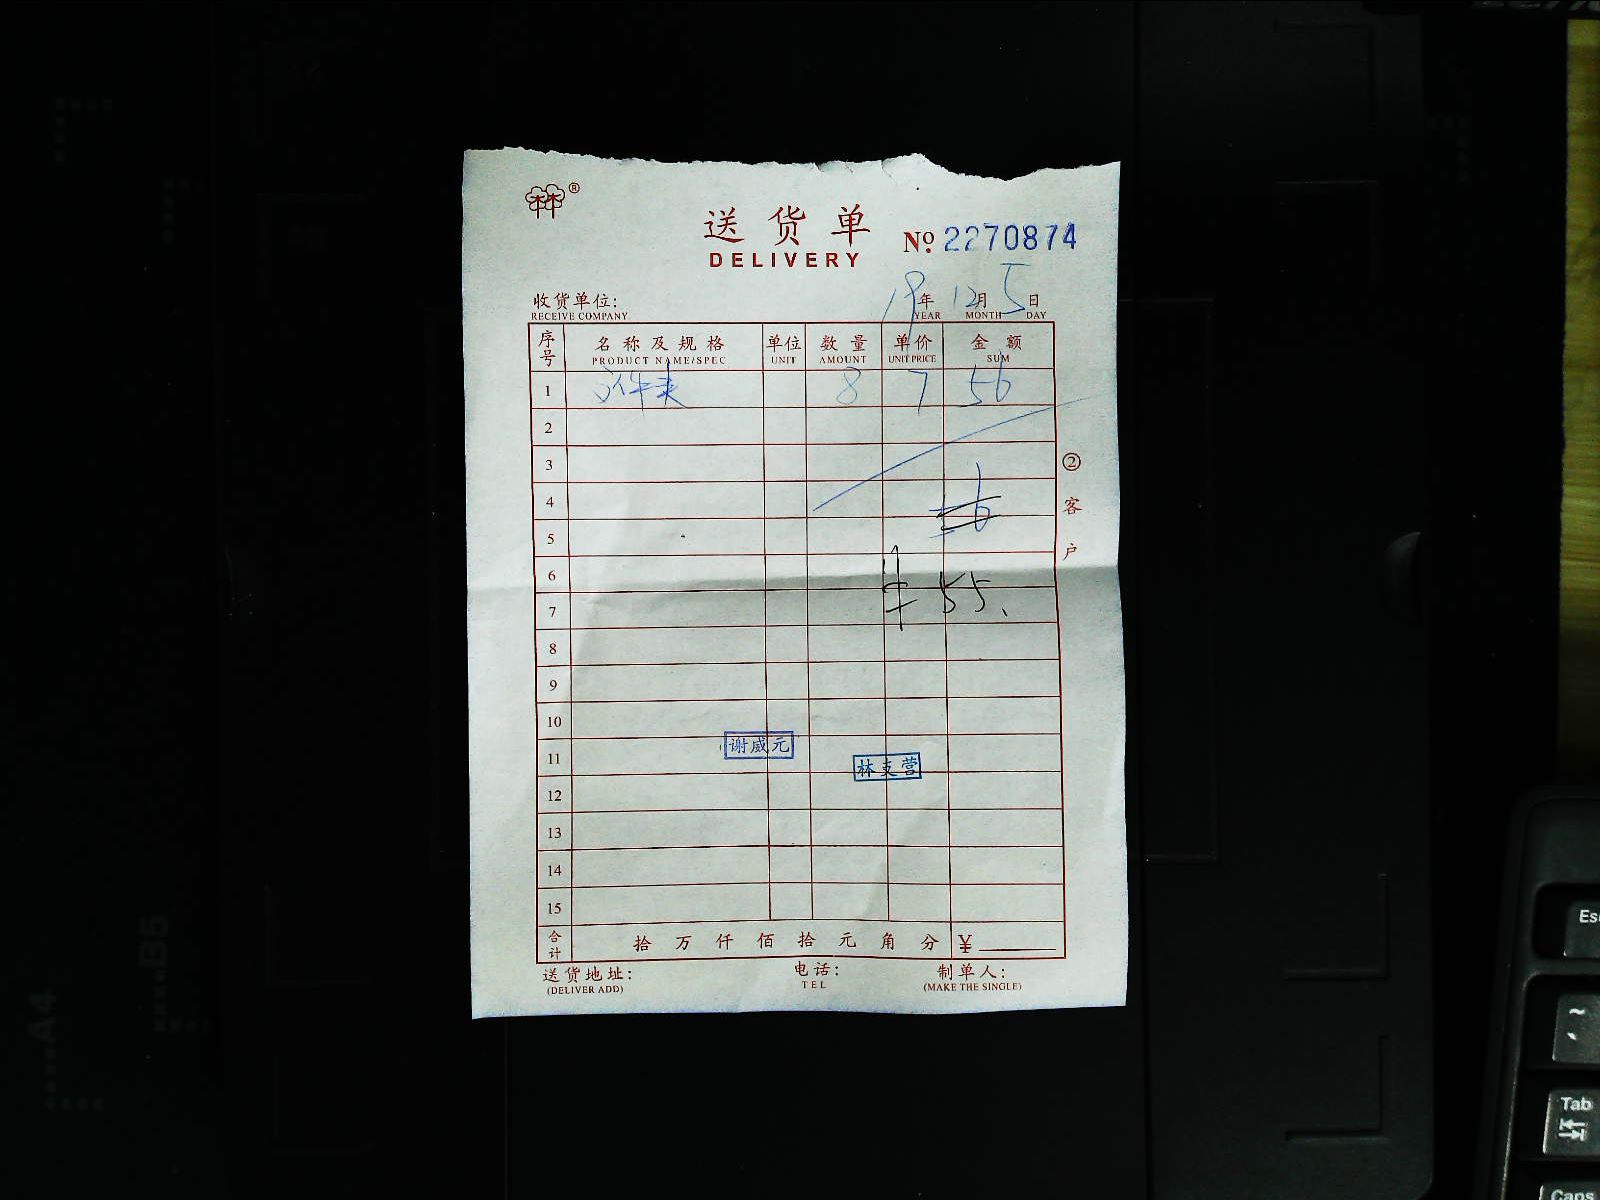 林®
送货单
DELIVERY
No. 2270874
收货单位:
RECEIVE COMPANY
19年 12月 5日
YEAR MONTH DAY
序号 名称及规格 单位 数量 单价 金额
PRODUCT NAME/SPEC UNIT AMOUNT UNIT PRICE SUM
1 文件夹 8 7 56
2
3
4
5
6
¥ 55.
7
8
9
10
谢威元
11
林支营
12
13
14
15
合计 拾 万 仟 佰 拾 元 角 分 ¥
送货地址: 电话: 制单人:
(DELIVER ADD) TEL (MAKE THE SINGLE)
②客户
B5
A4
Esc
~
Tab
Caps